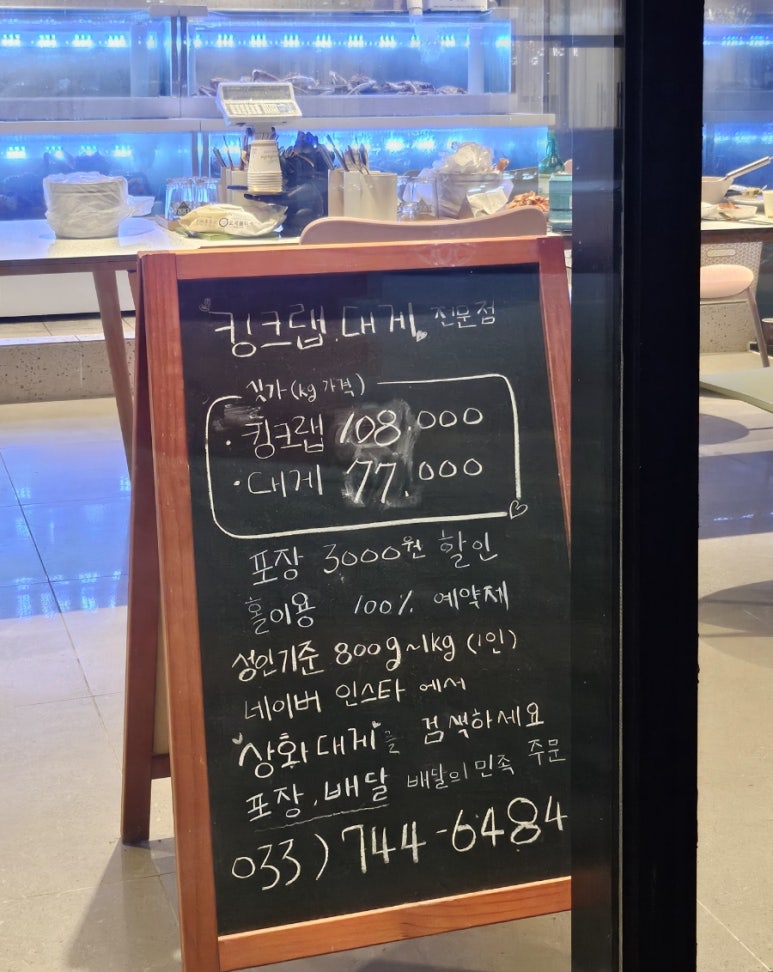 킹크랩.대게 전문점
싯가(kg 가격)
·킹크랩 108.000
·대게 77.000
포장 3000원 할인
홀이용 100% 예약제
성인기준 800g~1kg (1인)
네이버 인스타 에서
"상화대게"를 검색하세요
포장.배달 배달의민족 주문
033) 744-6484